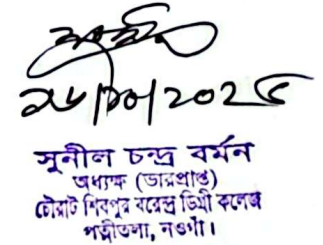 ২৮/১০/২০২৫
সুনীল চন্দ্র বর্মন
অধ্যক্ষ (ভারপ্রাপ্ত)
চৌরাট শিবপুর বরেন্দ্র ডিগ্রী কলেজ
পত্নীতলা, নওগাঁ।